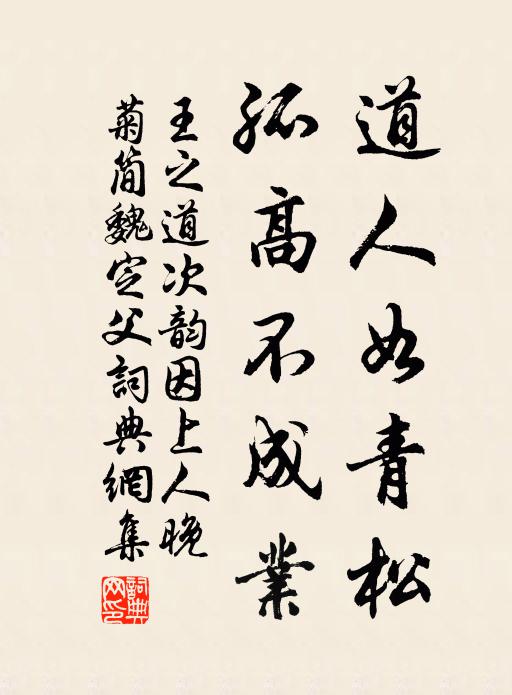 道人如青松
孤高不成業
王之道次韵因上人晚
菊簡魏定父詞典網集
詞典網印